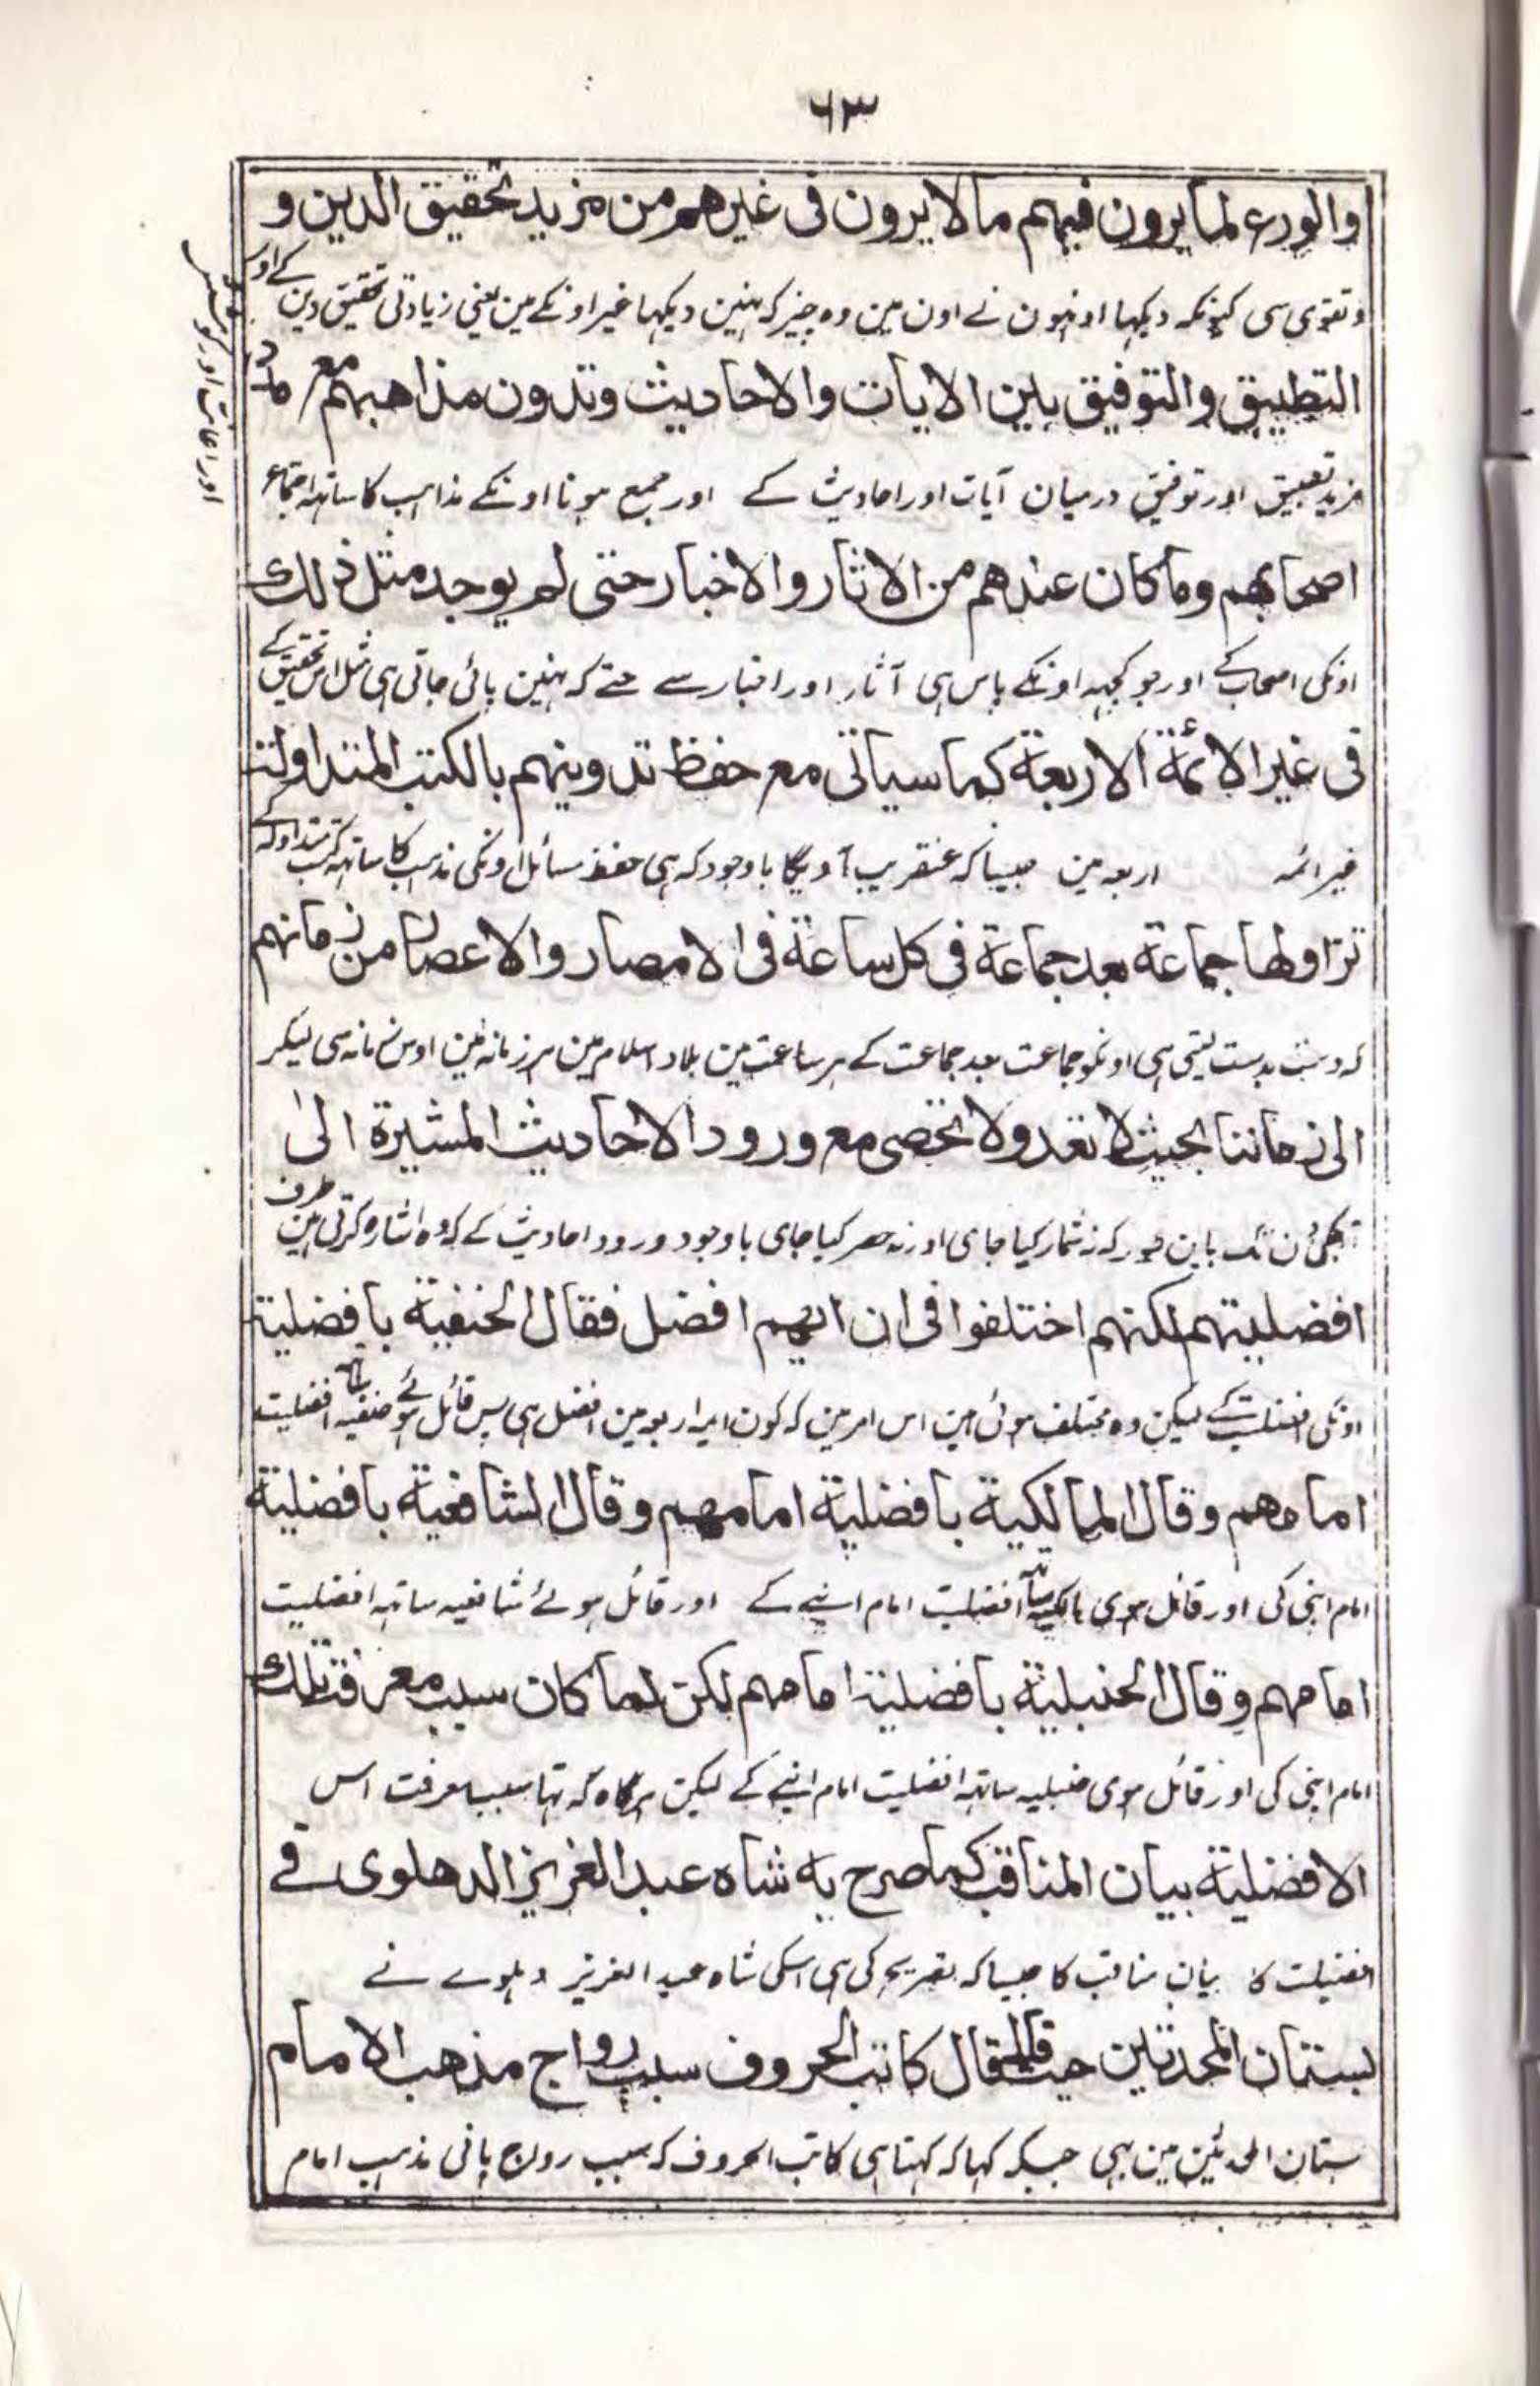 ٦٣
والورع لما يرون فيهم مالا يرون فى غيرهم من مزيد تحقيق الدين و
وتقوى سى كيونكہ ديكها اونهون نے اون مين وہ چيز كہ نهين ديكها غير اونكے مين يعنى زيادتى تحقيق دين كے اور
التطبيق والتوفيق بين الايات والاحاديث وتدون مذاهبهم مع
مزيد تطبيق اور توفيق درميان آيات اور احاديث كے اور جمع ہونا اونكے مذاہب كا ساتهہ اجتماع
اصحابهم وما كان عندهم من الاثار والاخبار حتى لم يوجد مثل ذلك
اونكى اصحاب كے اور جو كچهہ اونكے پاس ہى آثار اور اخبار سے حتے كہ نهين پائى جاتى ہى مثل اس تحقيق كے
فى غير الائمة الاربعة كما سياتى مع حفظ تدوينهم بالكتب المتداولة
غير ائمہ اربعہ مين جيسا كہ عنقريب آويگا باوجود كہ ہى حفظ مسائل اونكى مذہب كا ساتهہ كتب متداولہ كے
تزاولها جماعة بعد جماعة فى كل ساعة فى الامصار والاعصار من زمانهم
كہ دست بدست ليتى ہى اونكو جماعت بعد جماعت كے ہر ساعت مين بلاد اسلام مين ہر زمانہ مين اوس زمانہ سى ليكر
الى زماننا بحيث لا تعد ولا تحصى مع ورود الاحاديث المشيرة الى
تك باين طور كہ نہ شمار كيا جاى اور نہ حصر كيا جاى باوجود ورود احاديث كے كہ وہ اشارہ كرتى ہين طرف
افضليتهم لكنهم اختلفوا فى ان ايهم افضل فقال الحنفية بافضلية
اونكى افضليت كے ليكن وہ مختلف ہوئى ہين اس امر مين كہ كون ايمہ اربعہ مين افضل ہى پس قائل ہوئے حنفيہ ساتهہ افضليت
امامهم وقال المالكية بافضلية امامهم وقال الشافعية بافضلية
امام اپنى كى اور قائل ہوى مالكيہ ساتهہ افضليت امام اپنے كے اور قائل ہوئے شافعيہ ساتهہ افضليت
امامهم وقال الحنبلية بافضلية امامهم لكن لما كان سبب معرفة تلك
امام اپنى كى اور قائل ہوى حنبليہ ساتهہ افضليت امام اپنے كے ليكن ہرگاہ كہ تها سبب معرفت اس
الافضلية بيان المناقب كما صرح به شاه عبد العزيز الدهلوى فے
افضيلت كا بيان مناقب كا جيسا كہ تصريح كى ہى اسكى شاہ عبد العزيز دہلوے نے
بستان المحدثين حيث قال قال كاتب الحروف سبب رواج مذهب الامام
بستان المحدثين مين بہى جبكہ كہا كہ كہتا ہى كاتب الحروف كہ سبب رواج پانى مذہب امام